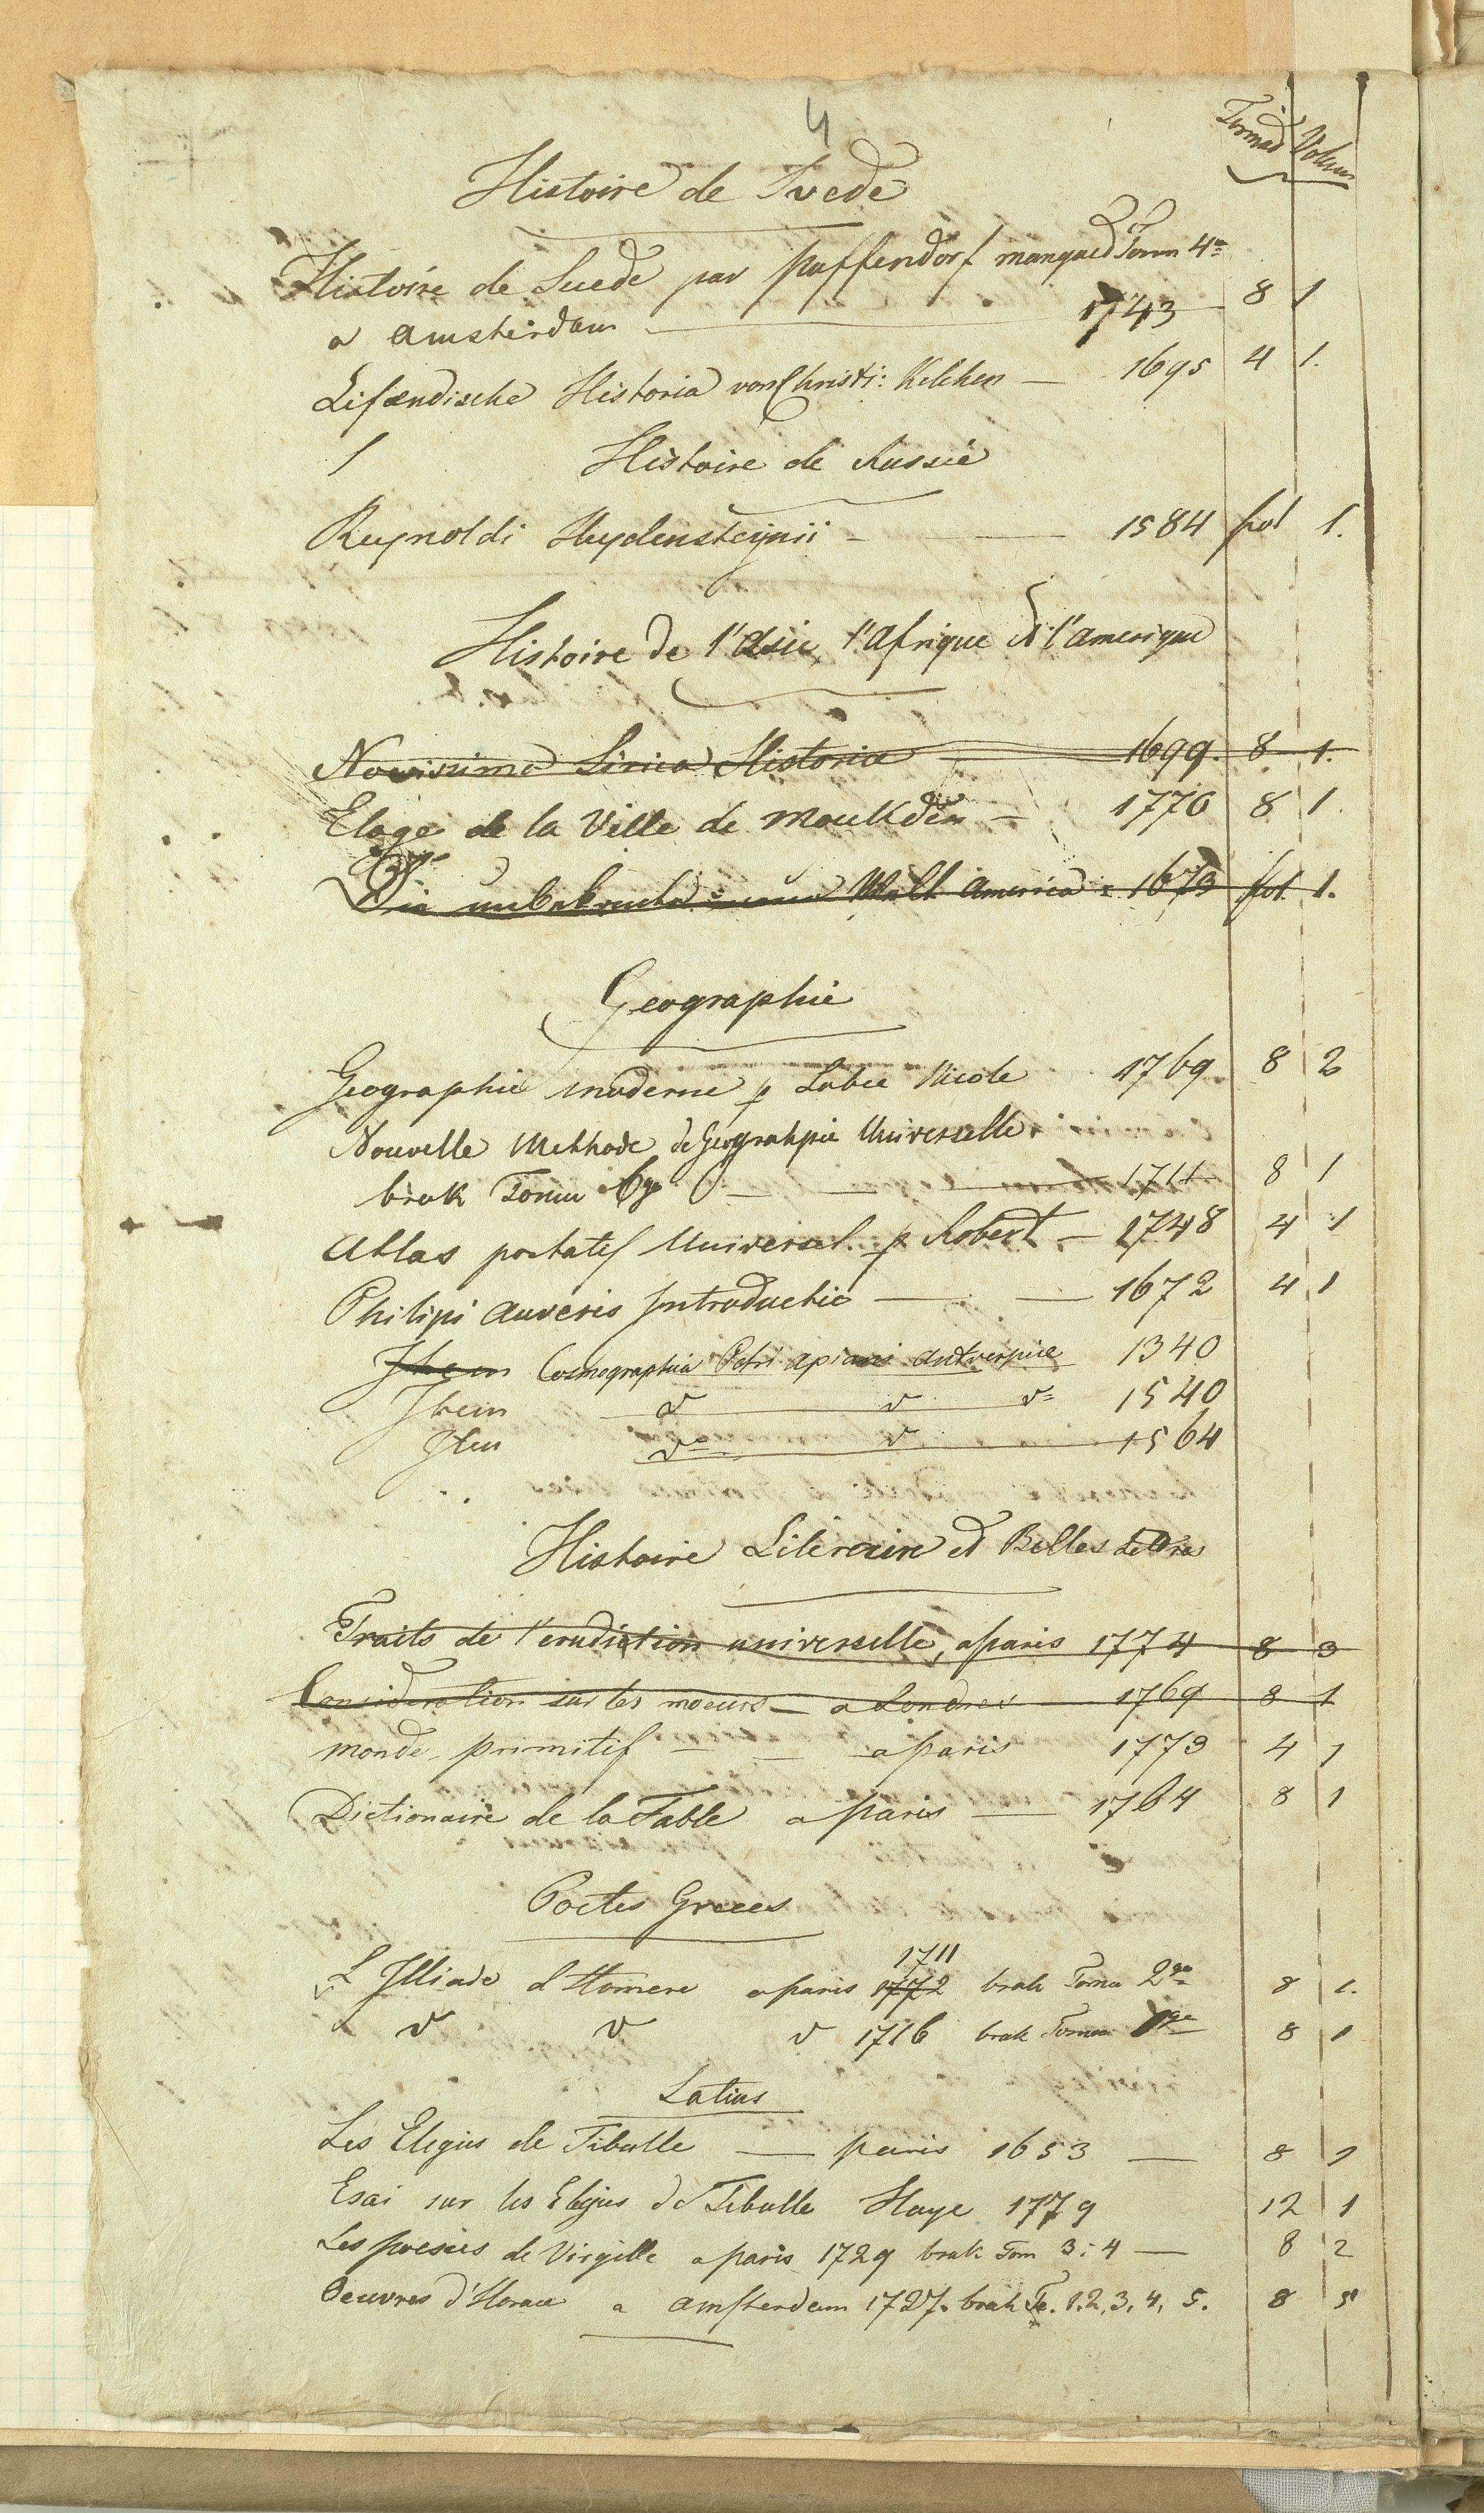 4
Formad Volum
Histoire de Svede
Histoire de Suede par Puffendorf manqued Tomu 4o
a Amsterdam — 1743 8 1
Lifændische Historia von Christi: Kelchen — 1695 4 1.
Histoire de Russie
Reynoldi Heydensteynii — 1584 fol 1.
Histoire de l'Asie, l'Afrique et l'Amerique
Novissima Sinica Historia 1699. 8 1.
Eloge de la Ville de Moukden — 1770 8 1.
Die unbekante neue Welt America = 1673 fol. 1.
Geographie
Geographie moderne p Labee Nicole 1769 8 2
Nouvelle Methode de Geograhpie Universelle
brak Tomu 6go — — 1711 8 1
Atlas portatif Universel p Robert — 1748 4 1
Philipi Cluveris Introductio — — 1672 4 1
Jtem Cosmographia Petri Apiani Antverpiae 1340
Jtem v v v= 1540
Jtem vo v 1564
Histoire Literaire et Belles Lettre
Traits de l'erudiction universelle, a paris 1774 8 3
Consideration sur les moeurs — a Londres 1769 8 1
monde primitif — — a paris 1773 4 1
Dictionaire de la Fable a paris — 1764 8 1
Poetes Grecces
1711
L Jlliade d'Homere a paris 1772 brak Tomu 2go 8 1.
v v v 1716 brak Tomu 1go 8 1
Latins
Les Elegies de Tibulle — paris 1653 — 8 1
Esai sur les Elegies de Tibulle Haye 1779 12 1
Les poesies de Virgille a paris 1729 brak Tom 3: 4 — 8 2
Oeuvres d'Horace a Amsterdam 1727. brak To. 1. 2, 3, 4, 5. 8 5